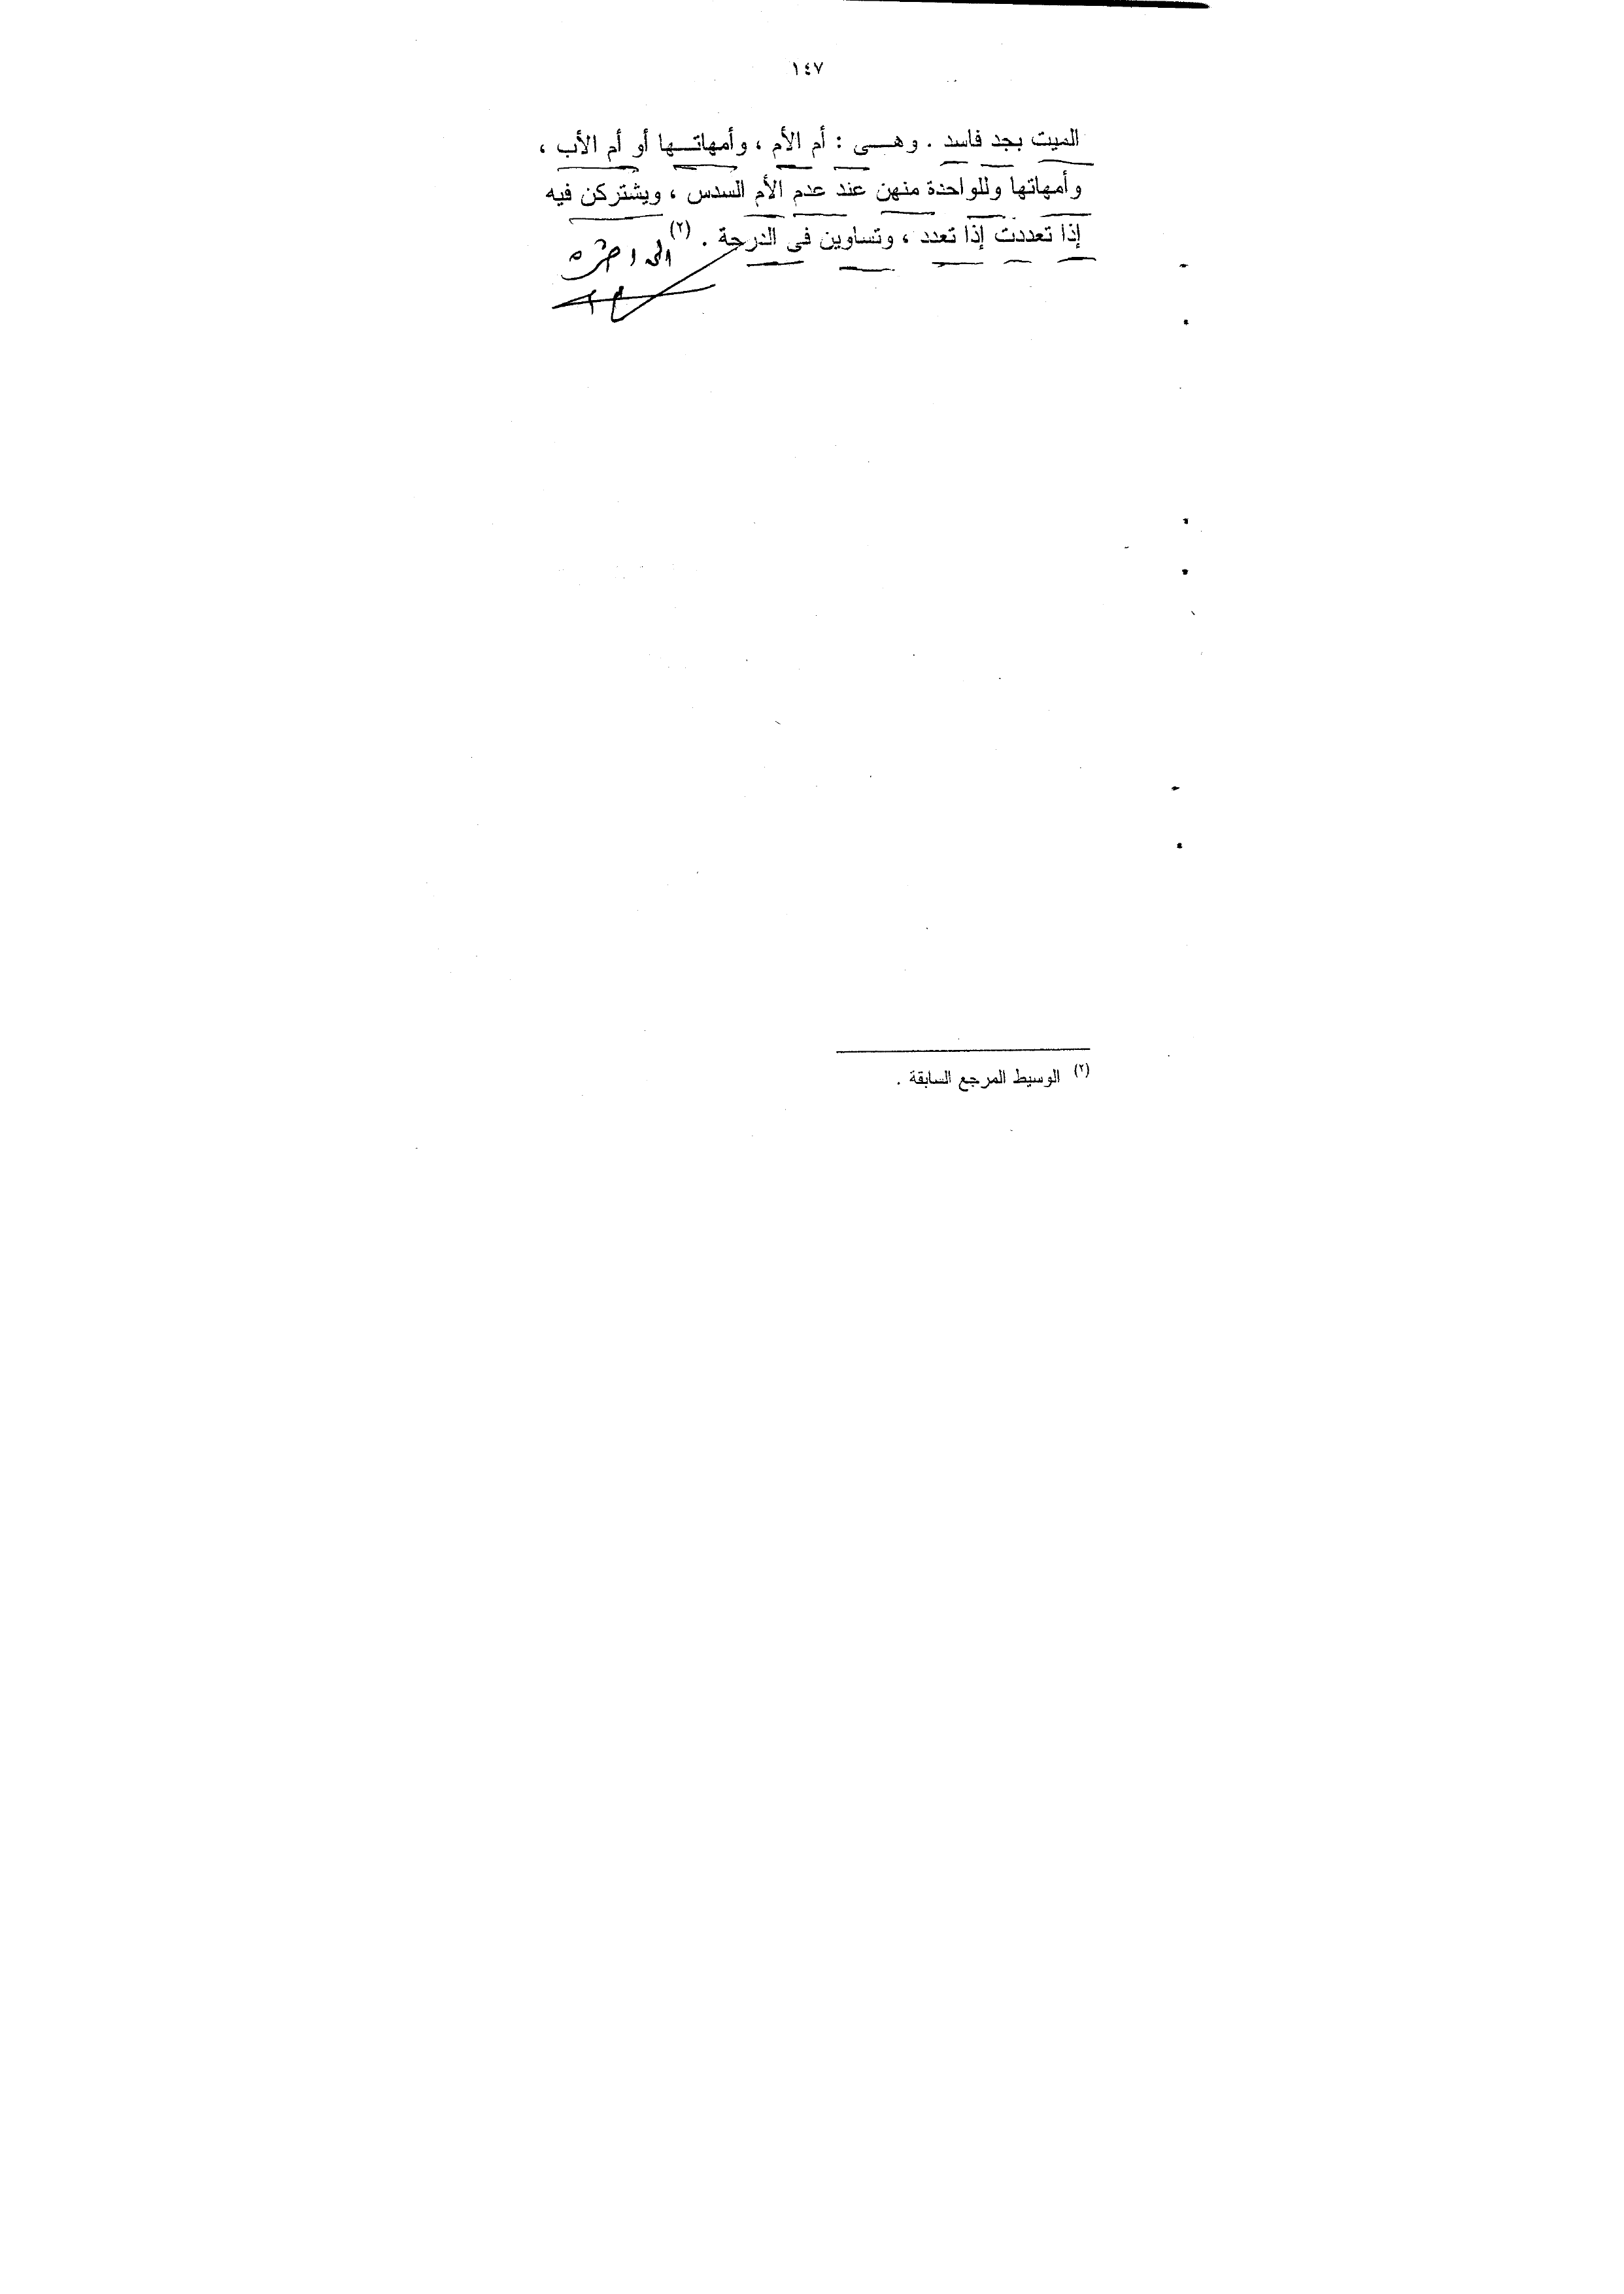 ١٤٧
الميت بجد فاسد . وهـــى : أم الأم ، وأمهاتــها أو أم الأب ،
وأمهاتها وللواحدة منهن عند عدم الأم السدس ، ويشتركن فيه
إذا تعددت إذا تعدد ، وتساوين فى الدرجة . (٢)
(٢) الوسيط المرجع السابقة .